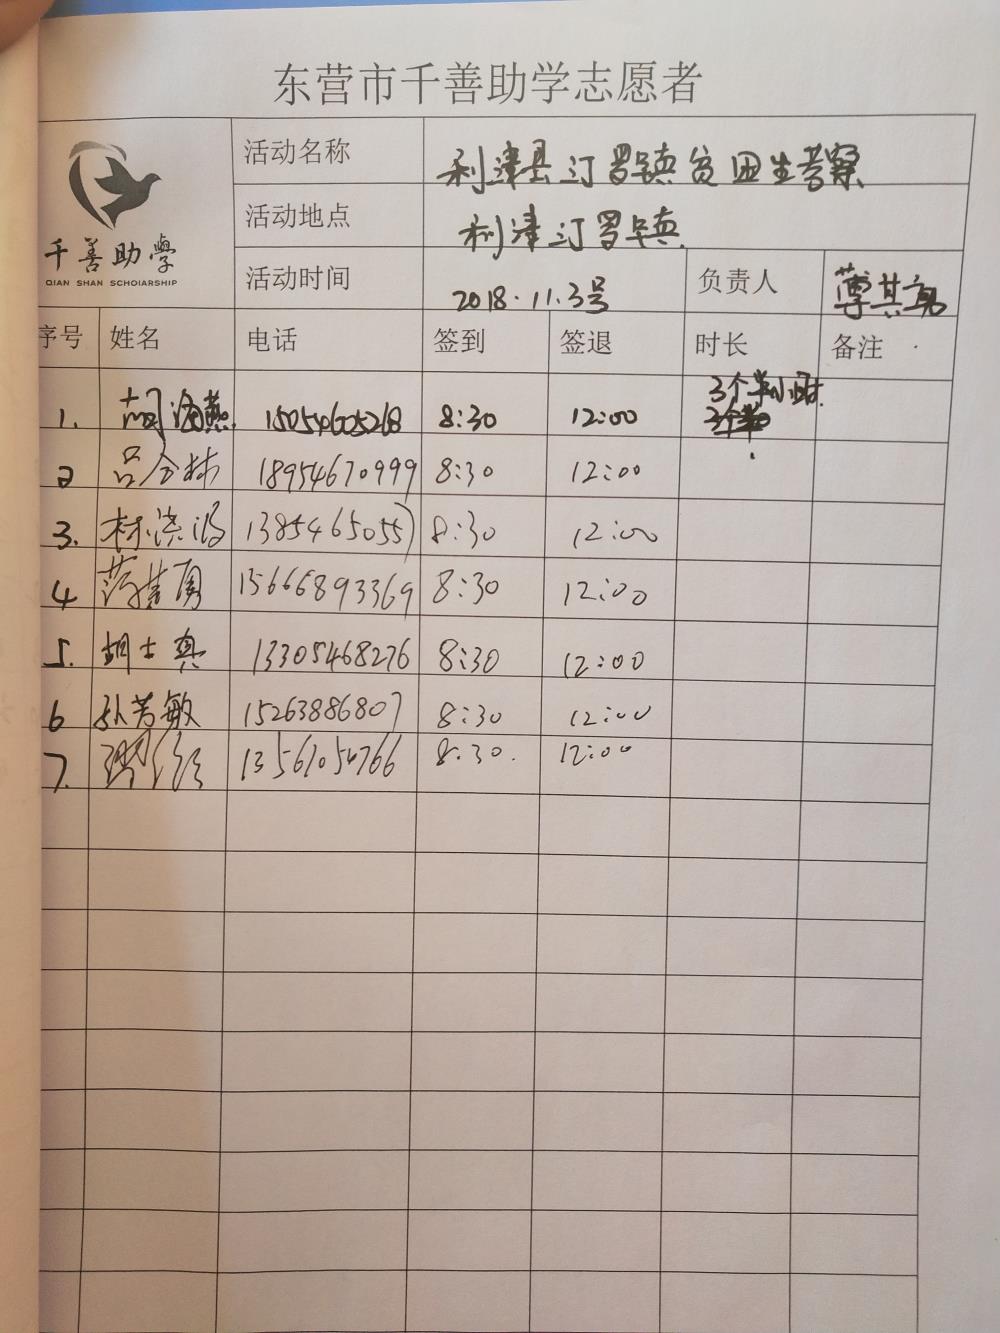 东营市千善助学志愿者
千善助學
QIAN SHAN SCHOlARSHIP
活动名称 利津县汀罗镇贫困生考察
活动地点 利津汀罗镇
活动时间 2018.11.3号 负责人 薄其
序号 姓名 电话 签到 签退 时长 备注
1. 胡海燕 15054605268 8:30 12:00 3个半小时
2 吕全林 18954670999 8:30 12:00
3. 林 1385465055 8:30 12:00
4 15666893369 8:30 12:00
5. 胡士真 13305468276 8:30 12:00
6 孙芳敏 15263886807 8:30 12:00
7. 13561054766 8:30. 12:00